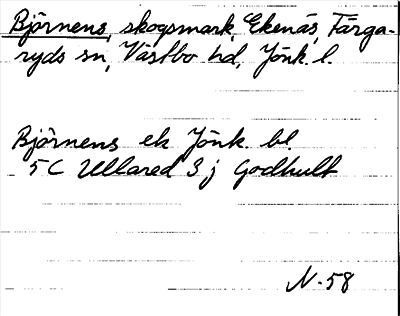 Björnens, skogsmark, Ekenäs, Färga-
ryds sn, Västbo hd, Jönk. l.
Björnens ek Jönk. bl.
5 C Ullared 3 j Godhult
N-58